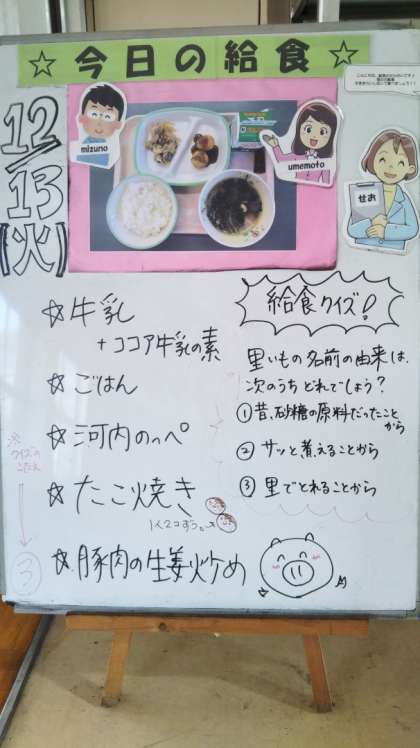 ☆今日の給食☆
12/13
(火)
mizuno
umemoto
せお
☆牛乳
+ココア牛乳の素
☆ごはん
☆河内のっぺ
☆たこ焼き
1人2コずつ。
☆豚肉の生姜炒め
給食クイズ!
里いもの名前の由来は、
次のうちどれでしょう?
①昔、砂糖の原料だったこと
から
②サッと煮えることから
③里でとれることから
※
クイズの
こたえ
③